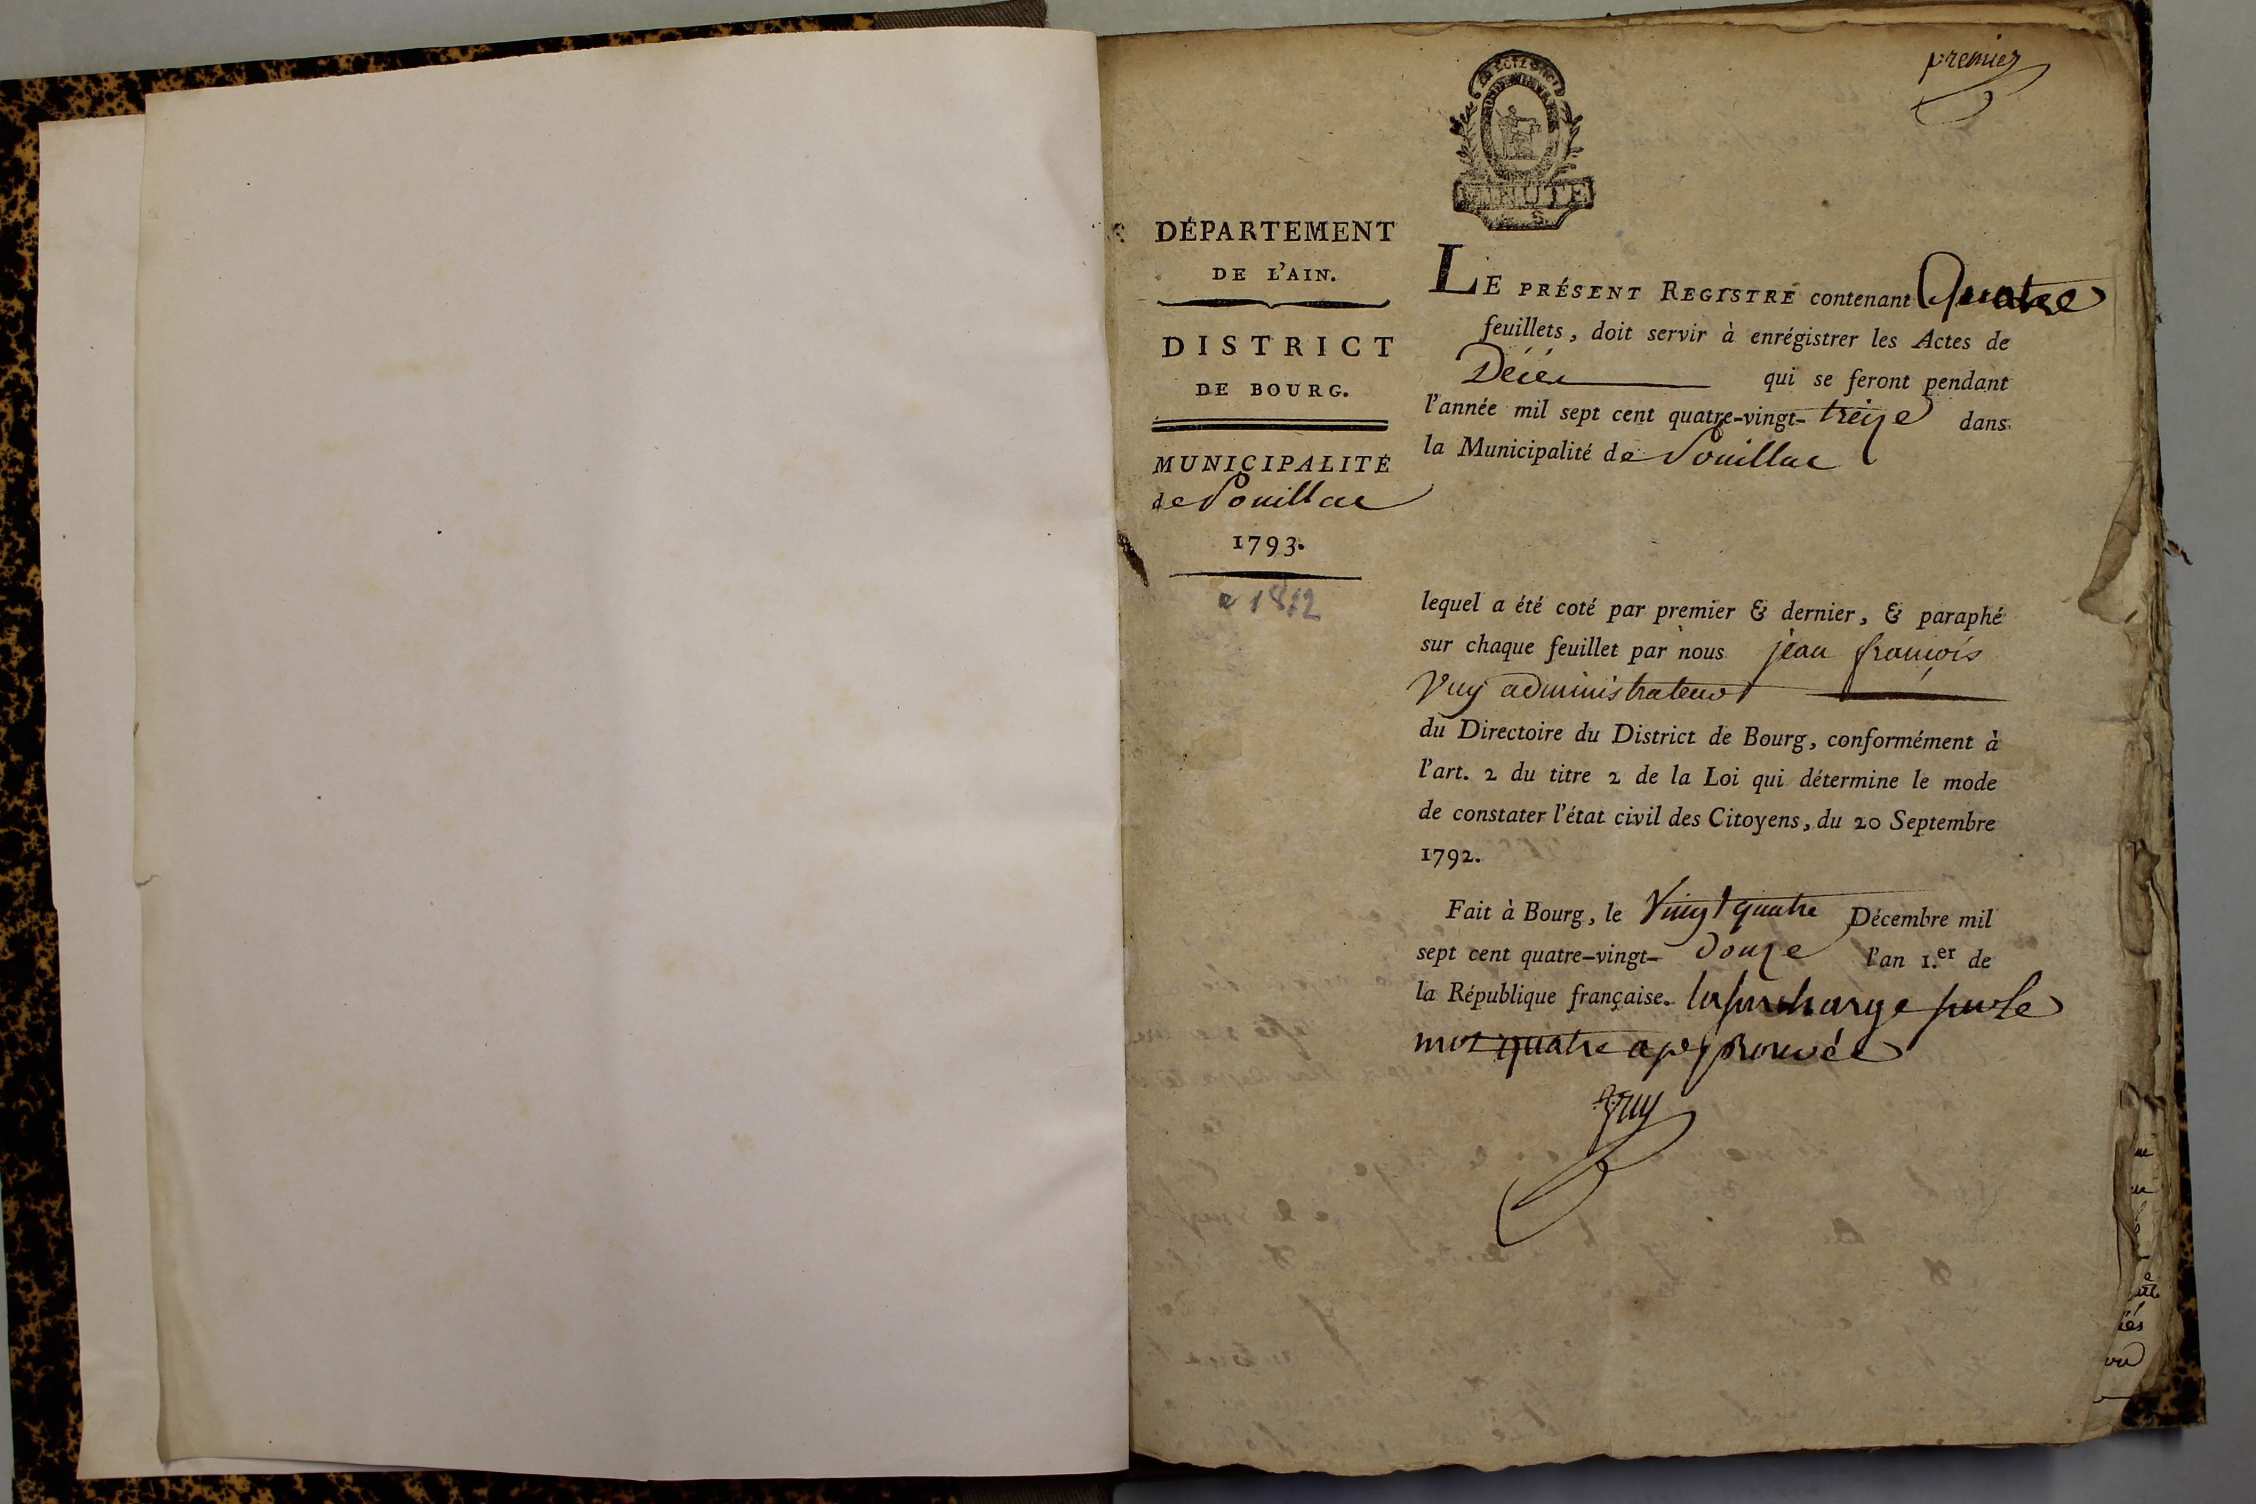 premier
MINUTE
DÉPARTEMENT
DE L'AIN.
DISTRICT
DE BOURG.
MUNICIPALITÉ
de Pouillac
1793.
a 1812
LE PRÉSENT REGISTRE contenant Quatre
feuillets, doit servir à enrégistrer les Actes de
Décès qui se feront pendant
l'année mil sept cent quatre-vingt-treize dans
la Municipalité de Pouillac
lequel a été coté par premier & dernier, & paraphé
sur chaque feuillet par nous jean françois
Vuy administrateur
du Directoire du District de Bourg, conformément à
l'art. 2 du titre 2 de la Loi qui détermine le mode
de constater l'état civil des Citoyens, du 20 Septembre
1792.
Fait à Bourg, le Vingt quatre Décembre mil
sept cent quatre-vingt-douze l'an 1.er de
la République française. la surcharge sur le
mot quatre approuvée
Vuy